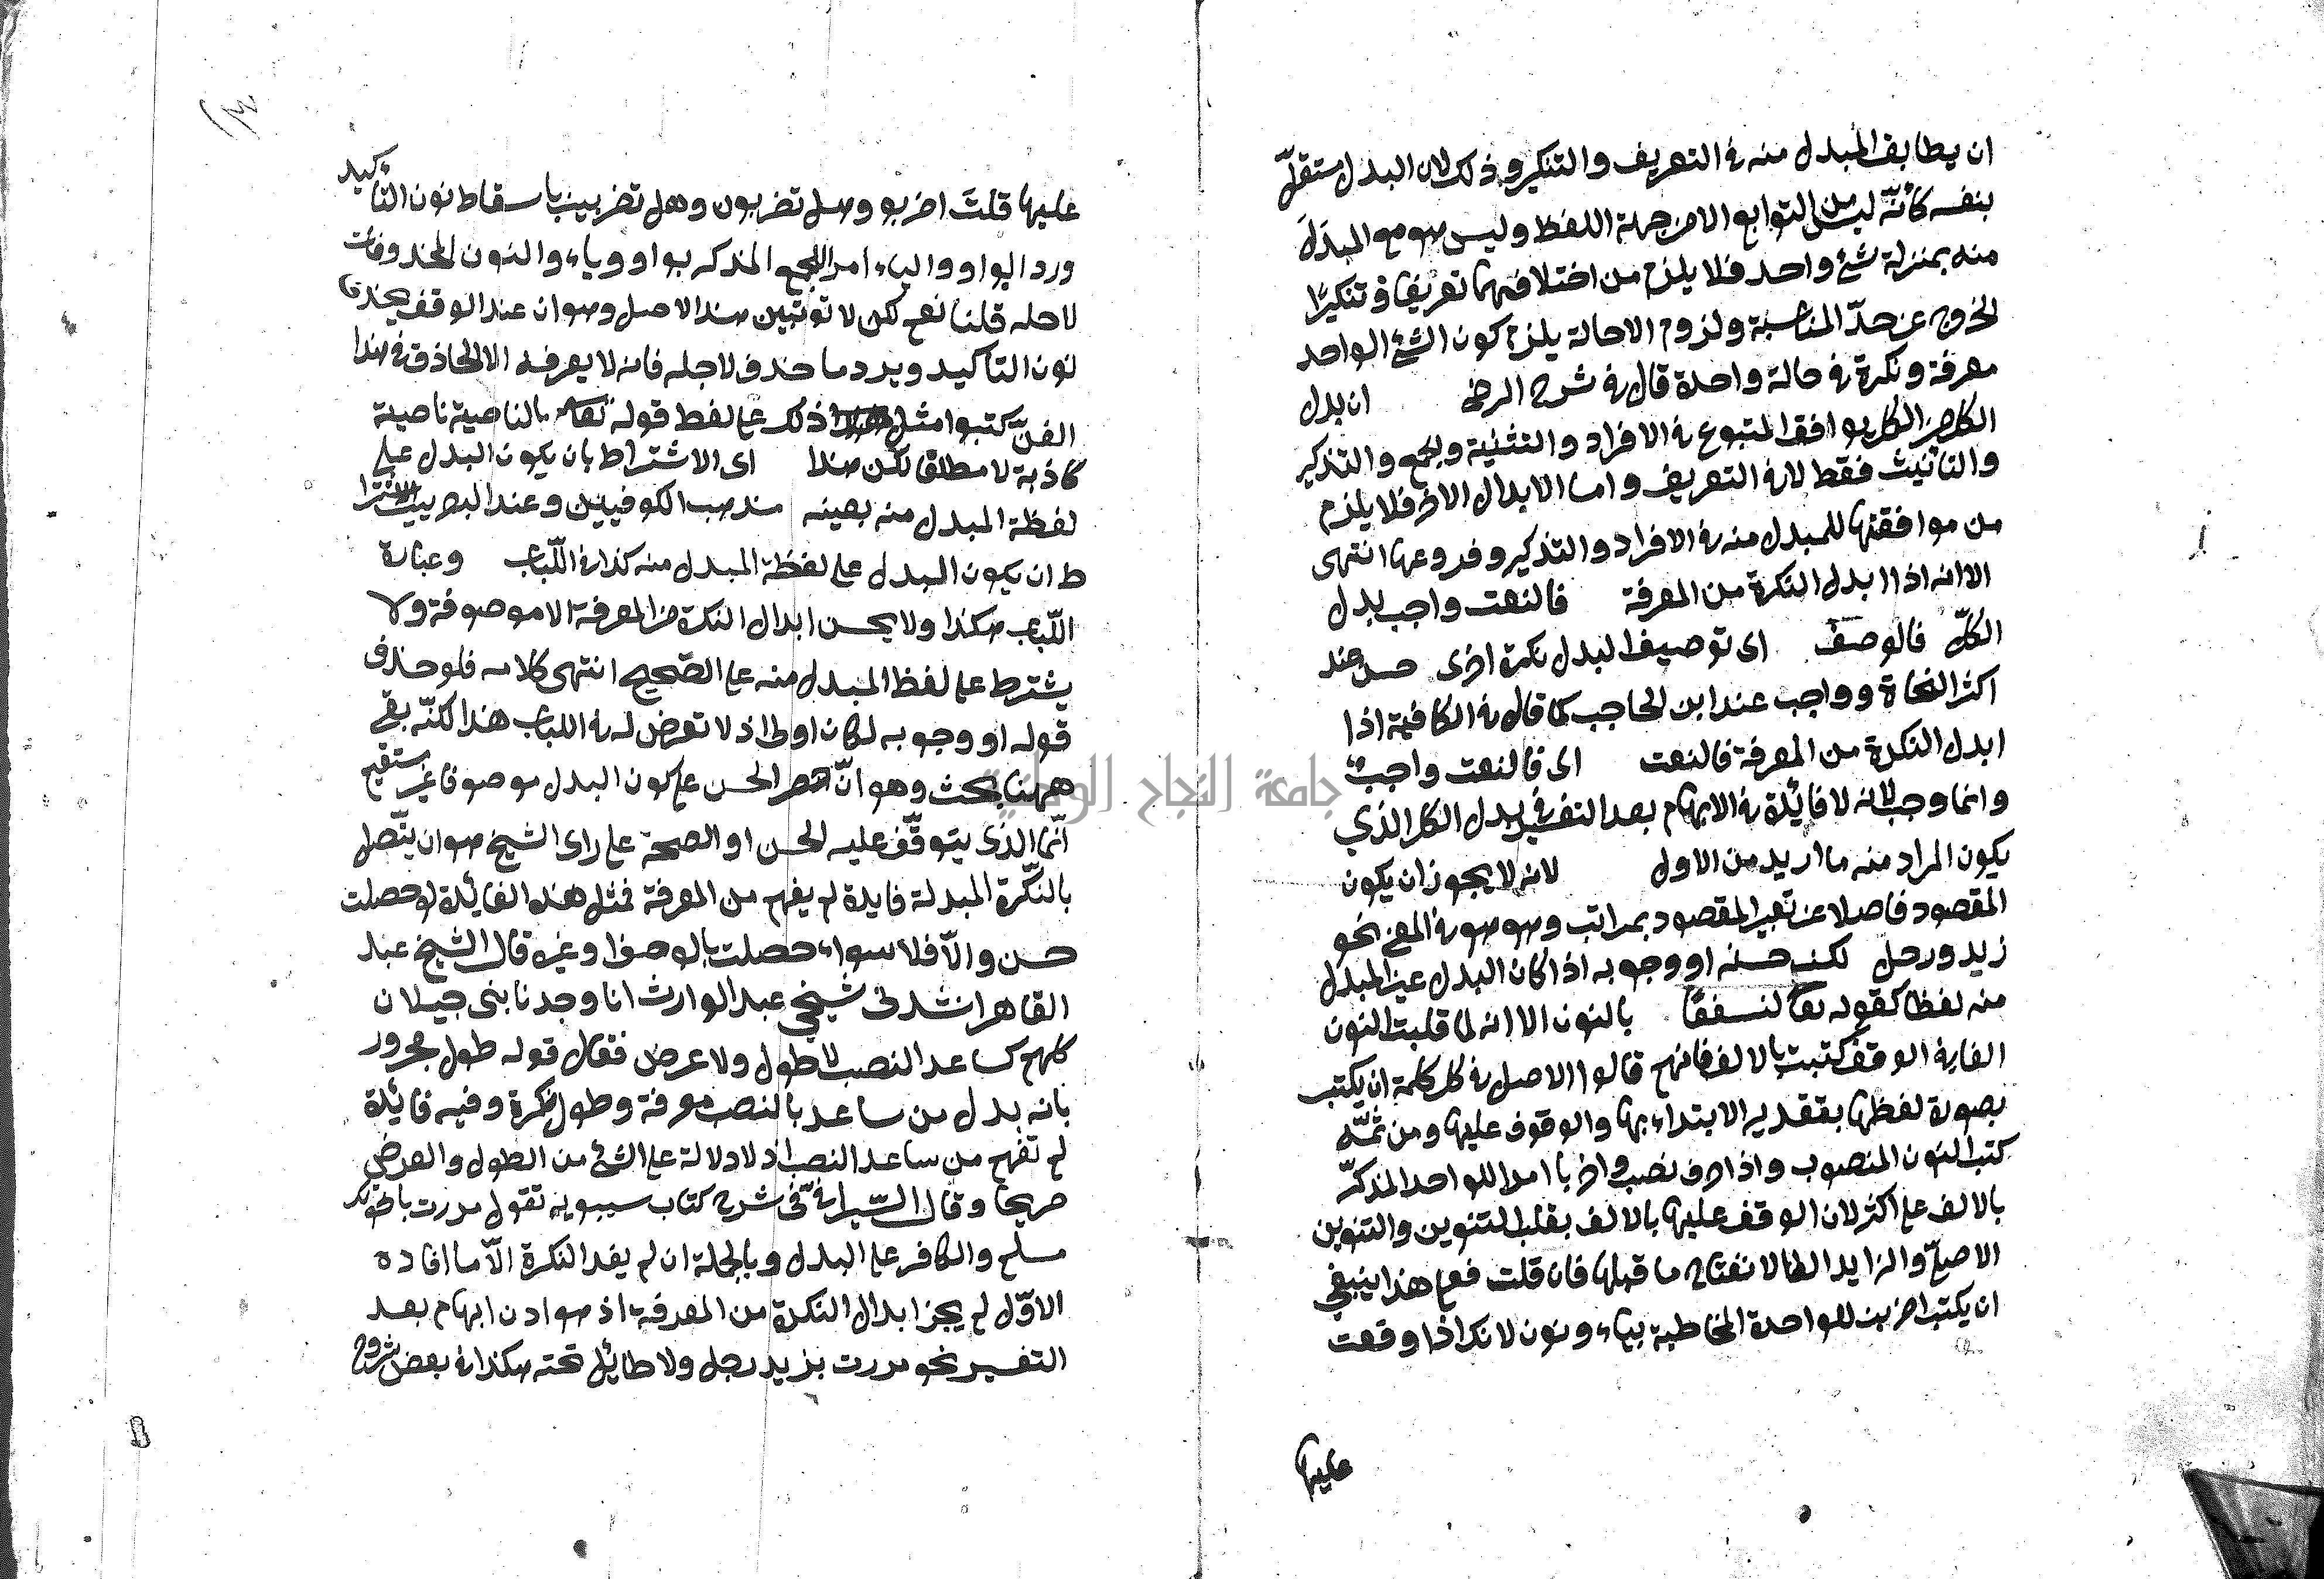 ان يطابق المبدل منه فى التعريف والتنكير وذلك لان البدل مستقلّ
بنفسه كأنّه ليس من التوابع الا من جهة اللفظ وليس هو مع المبدَل
منه بمنزلة شئ واحد فلا يلزم من اختلافهما تعريفا وتنكيرًا
الخروج عن حدّ المناسبة ولزوم الاحالة يلزم كون الشئ الواحد
معرفة ونكرة فى حالة واحدة قال فى شرح الرضى ان بدل
الكل من الكل يوافق المتبوع فى الافراد والتثنية والجمع والتذكير
والتأنيث فقط لا فى التعريف واما الابدال الاخر فلا يلزم
من موافقتها للمبدل منه فى الافراد والتذكير وفروعها انتهى
الا انه اذا ابدل النكرة من المعرفة فالنعت واجب بدل
الكلّ فالوصف اى توصيف البدل نكرة اخرى حسن عند
اكثر النحاة وواجب عند ابن الحاجب كما قال فى الكافية اذا
ابدل النكرة من المعرفة فالنعت اى فالنعت واجب
وانما وجب لانه لا فائدة فى الابهام بعد التفسير فى بدل الكل الذي
يكون المراد منه ما اريد من الاول لانه لا يجوز ان يكون
المقصود فاصلا عن تعبير المقصود بمراتب وهو هو فى المعنى نحو
زيد ورجل لكن حسنه او وجوبه اذا كان البدل عين المبدل
منه لفظا كقوله تعا لنسفعًا بالنون الا انه لما قلبت النون
الفا فى الوقف كتبت بالالف فانهم قالوا الاصل فى كل كلمة ان يكتب
بصورة لفظها بتقدير الابتداء بها والوقوف عليها ومن ثمّه
كتب النون المنصوب واذا حرف نصب واضربا امرا للواحد المذكّر
بالالف على اكثر لان الوقف عليها بالالف بقلب التنوين والتنوين
الاصلىّ والزايد الفا لانفتاح ما قبلها فان قلت فعلى هذا ينبغي
ان يكتب اضربن للواحدة المخاطبة بياء ونون لانك اذا وقعت
عليها
عليها قلتَ اضربو وهل تضربون وهل تضربين باسقاط نون التأكيد
ورد الواو والياء امرا للجمع المذكر بواو وياء والنون المحذوفات
لاجله قلنا نعم لكن لا تويتين هذا الاصل وهو ان عند الوقف يحذف
نون التأكيد ويرد ما حذف لاجله فانه لا يعرفه الا الحاذق فى هذا
الفنّ كتبوا مثل ذلك على لفظ قوله تعا بالناصية ناصية
كاذبة لا مطلقا لكن هذا اى الاشتراط بان يكون البدل على
لفظة المبدل منه بعينه مذهب الكوفيين وعند البصريين الاشترا
ط ان يكون البدل على لفظة المبدل منه كذا فى اللّباب وعبارة
اللّباب هكذا ولا يحسن ابدال النكرة من المعرفة الا موصوفة ولا
يشترط على لفظ المبدل منه على الصّحيح انتهى كلامه فلو حذف
قوله او وجوبه لكان اولى اذ لا تعرض له فى اللباب هذا لكنّه بقى
ههنا بحث وهو انّ قصر الحسن على كون البدل موصوفا غير مستقيم
انّما الذى يتوقّف عليه الحسن او الصحة على راى الشيخ هو ان يتّصل
بالنّكرة المبدلة فايدة لم يفهم من المعرفة فمثل هذه الفائدة لو حصلت
حسن والاّ فلا سواء حصلت بالوصف او غيره قال الشيخ عبد
القاهر انشدنى شيخي عبد الوارث انا وجدنا بنى جيلان
كلهم كساعد النصب لا طول ولا عرض فقال قوله طول مجرور
بانه بدل من ساعد بالنصب معرفة وطول نكرة وفيه فائدة
لم تفهم من ساعد النصب اذ لا دلالة على الشئ من الطول والعرض
صريحا وقال السّيرافىّ فى شرح كتاب سيبويه تقول مررت باخويك
مسلم والكافر على البدل وبالجملة ان لم يفد النكرة الاّ ما افاده
الاوّل لم يجز ابدال النكرة من المعرفة اذ هو اذن ابهام بعد
التفسير نحو مررت بزيد رجل ولا طائل تحته هكذا فى بعض شروح
جامعة النجاح الوطنية